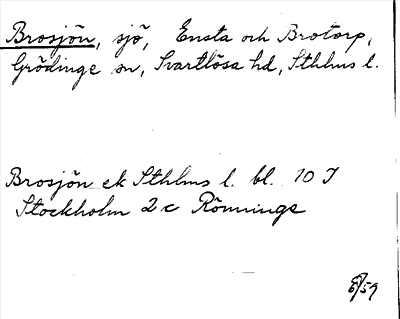 Brosjön, sjö, Ensta och Brotorp,
Grödinge sn, Svartlösa hd, Sthlms l.
Brosjön ek Sthlms l. bl. 10 I
Stockholm 2 c Rönninge
59